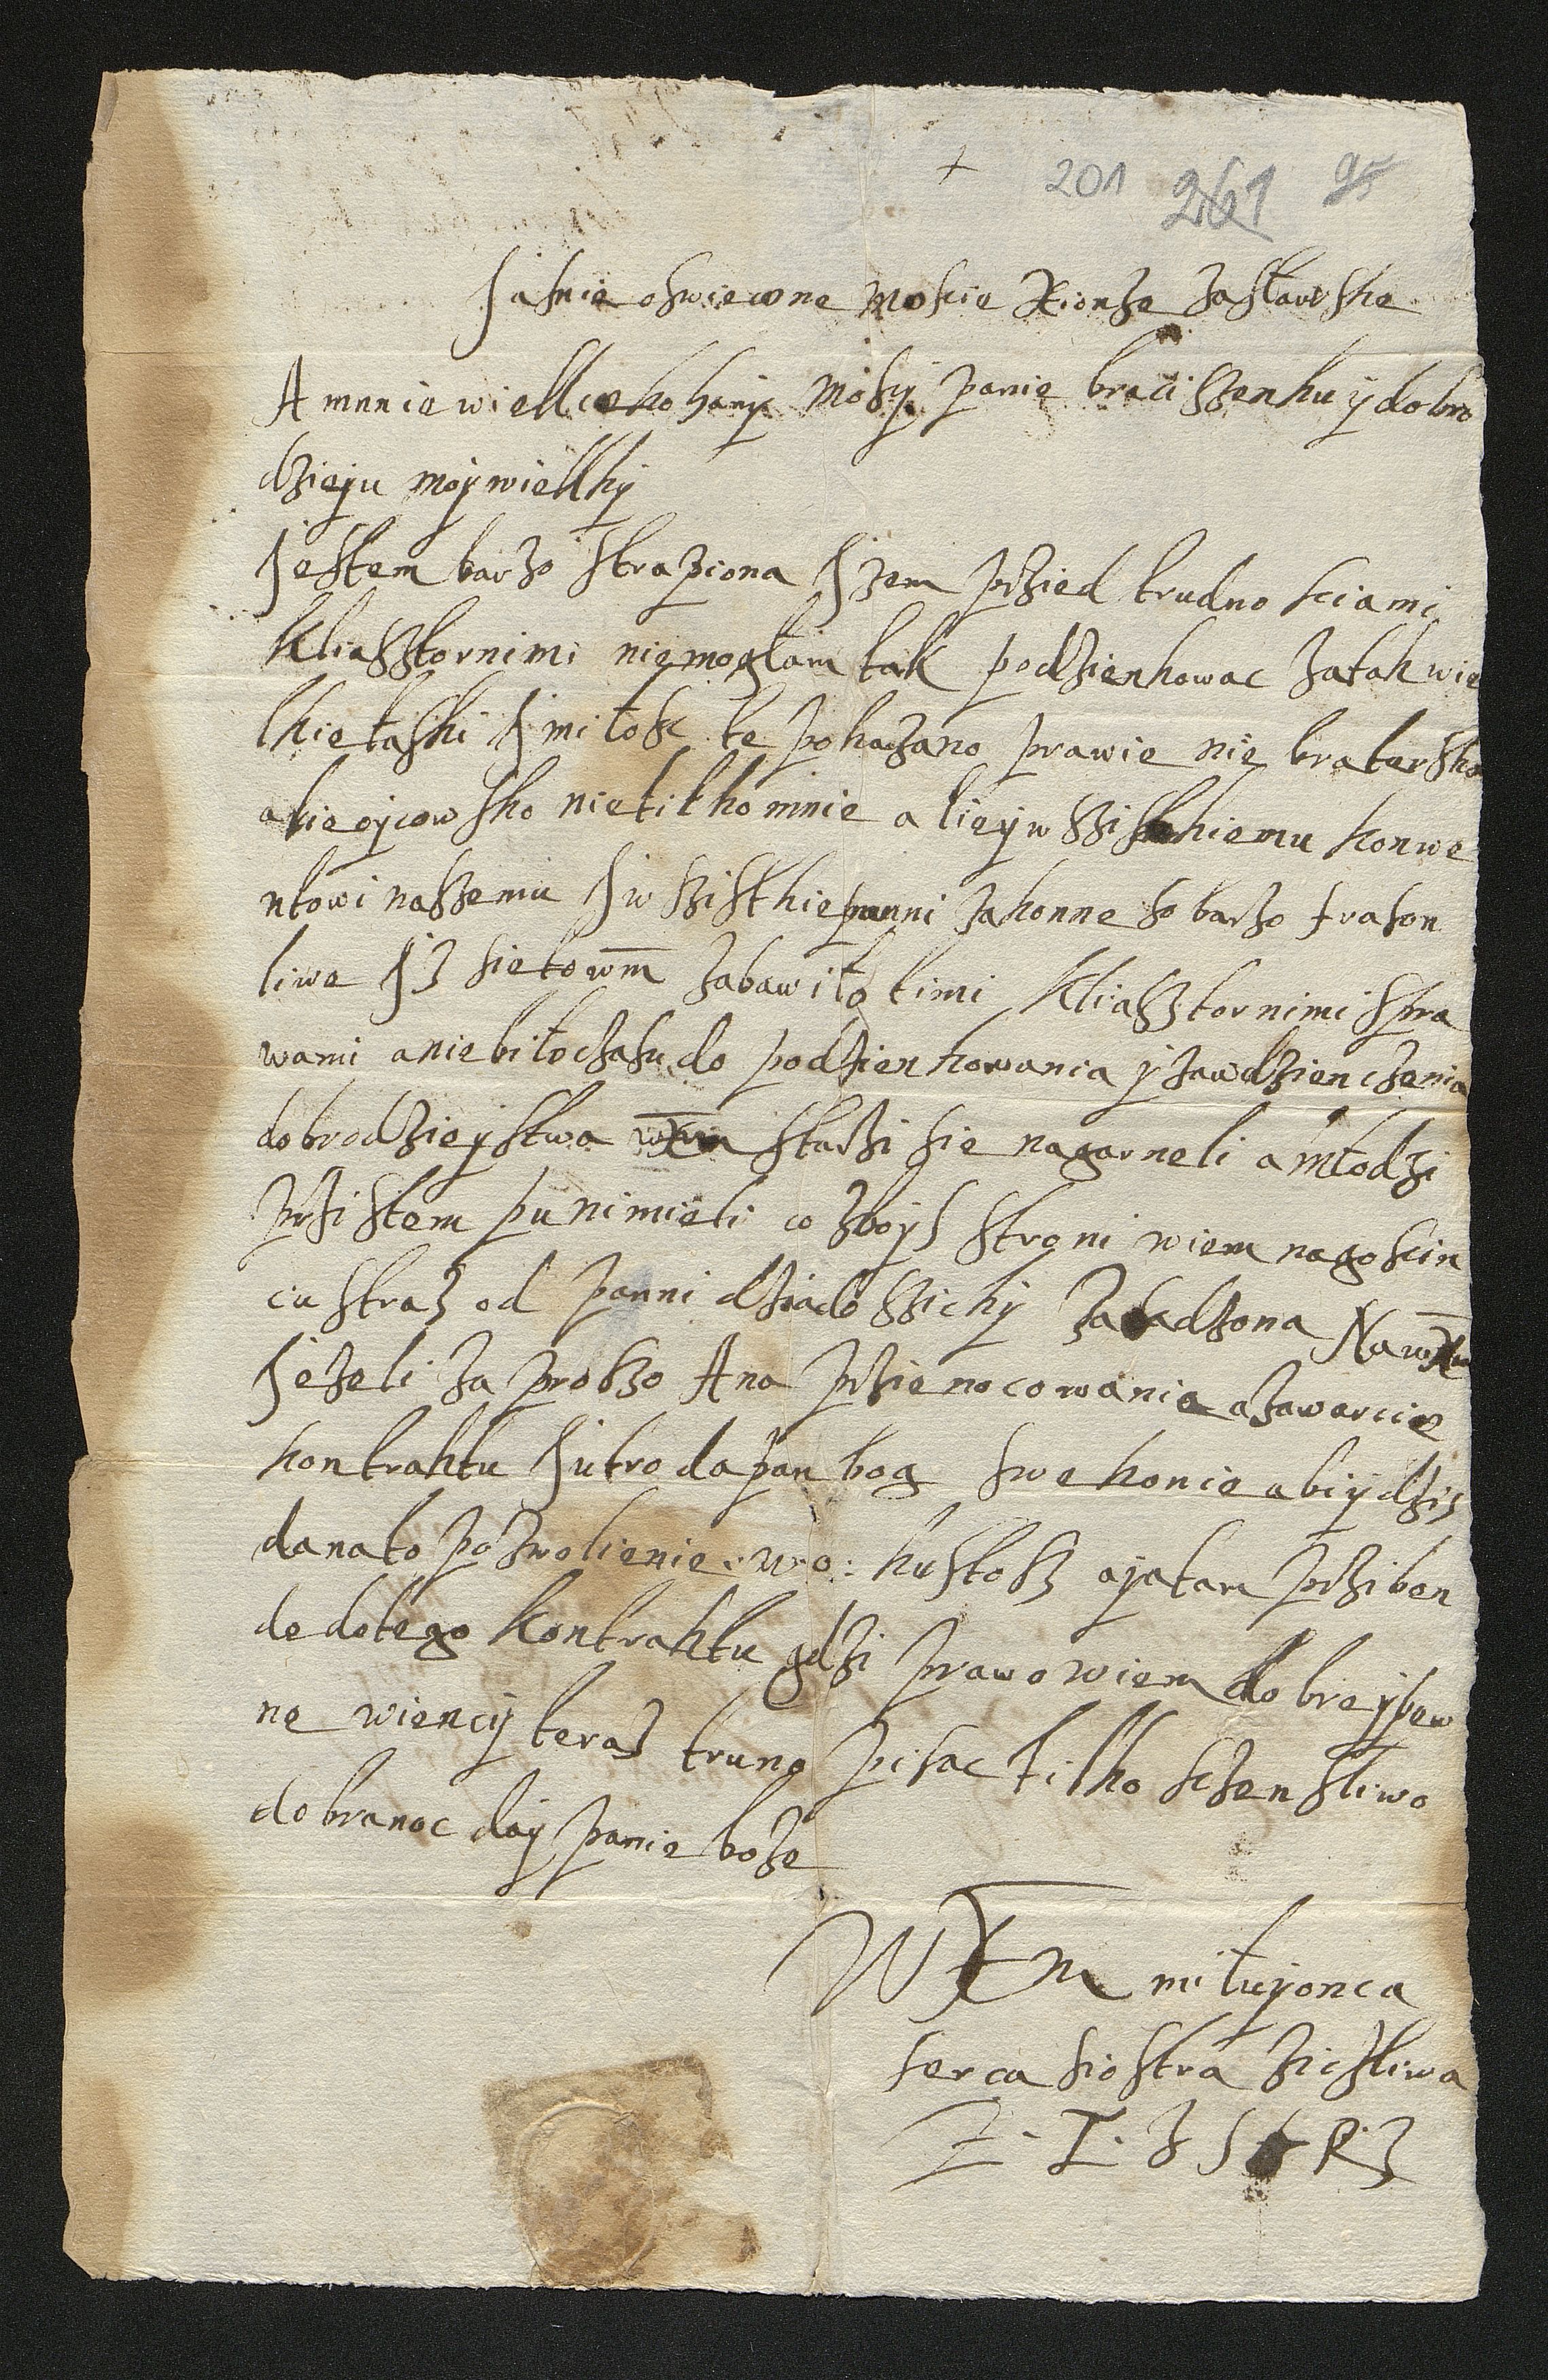 + 201 261 95
Jasnie oswiecone moscie Xionze Zaslawske
A mnnie wiellce kohany mosçy panie braciszenku y dobro
dzieyu moy wiellky
Jestem barzo strapiona Jzem przied trudnosciami
kliasztornimi niemoglam tak podzienkowac za tak wie
lkie laski J milosc te pokazano prawie nie bratersko
alie oycowsko nie tilko mnie aliey wszistkiemu konwe
ntowi naszemu J wszistkie panni zakonne so barzo frason
liwe Jz sie to wm zabawilo timi kliasztornimi spra
wami a nie bilo czasu do podzienkowania y zawdzienczenia
dobrodzieystwa wxm starzi sie nagarneli a mlodzi
przistempu ni mieli co z boys stroni wiem na goscin
cu straz od panni dziadoszichy zasadzona Na wxm
Jezeli za probzo A na przienocowanie a zawarcie
kontraktu Jutro da pan bog swe konie abi y dzis
da na to pozwolienie :w:o: kustosz a ja tam przi ben
de do tego kontraktu gdzi prawo wiem dobre y pew
ne wiency teraz truno pisac tilko sczensliwo
dobranoc day panie boze
WXM milujonca
serca siostra zicliwa
Z. T. Z S R Z